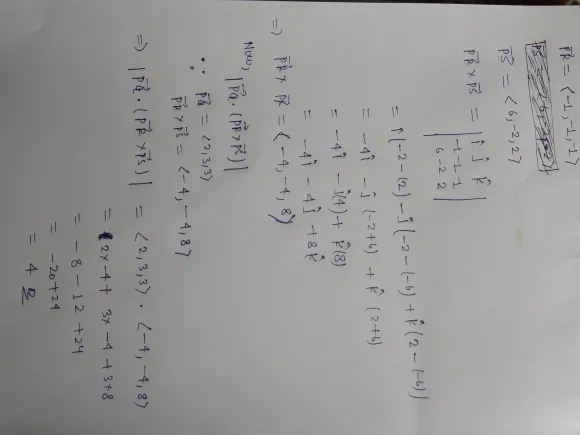 PR = ⟨-1, -1, 1⟩
PS = ⟨6, -2, 2⟩
PR × PS = | î ĵ k̂ |
-1 -1 1
6 -2 2
= î(-2-(2) - ĵ(-2-(-6) + k̂(2-(-6)|
= -4î - ĵ(-2+6) + k̂(2+6)
= -4î - ĵ(4) + k̂(8)
= -4î - 4ĵ + 8k̂
⇒ PR × PR = ⟨-4, -4, 8⟩
Now, |PQ·(PR × PS)|
∵ PQ = ⟨2,3,3⟩
PR × PS = ⟨-4, -4, 8⟩
⇒ |PQ·(PR × PS)| = ⟨2,3,3⟩·⟨-4, -4, 8⟩
= 2×-4 + 3×-4 + 3×8
= -8 - 12 + 24
= -20+24
= 4